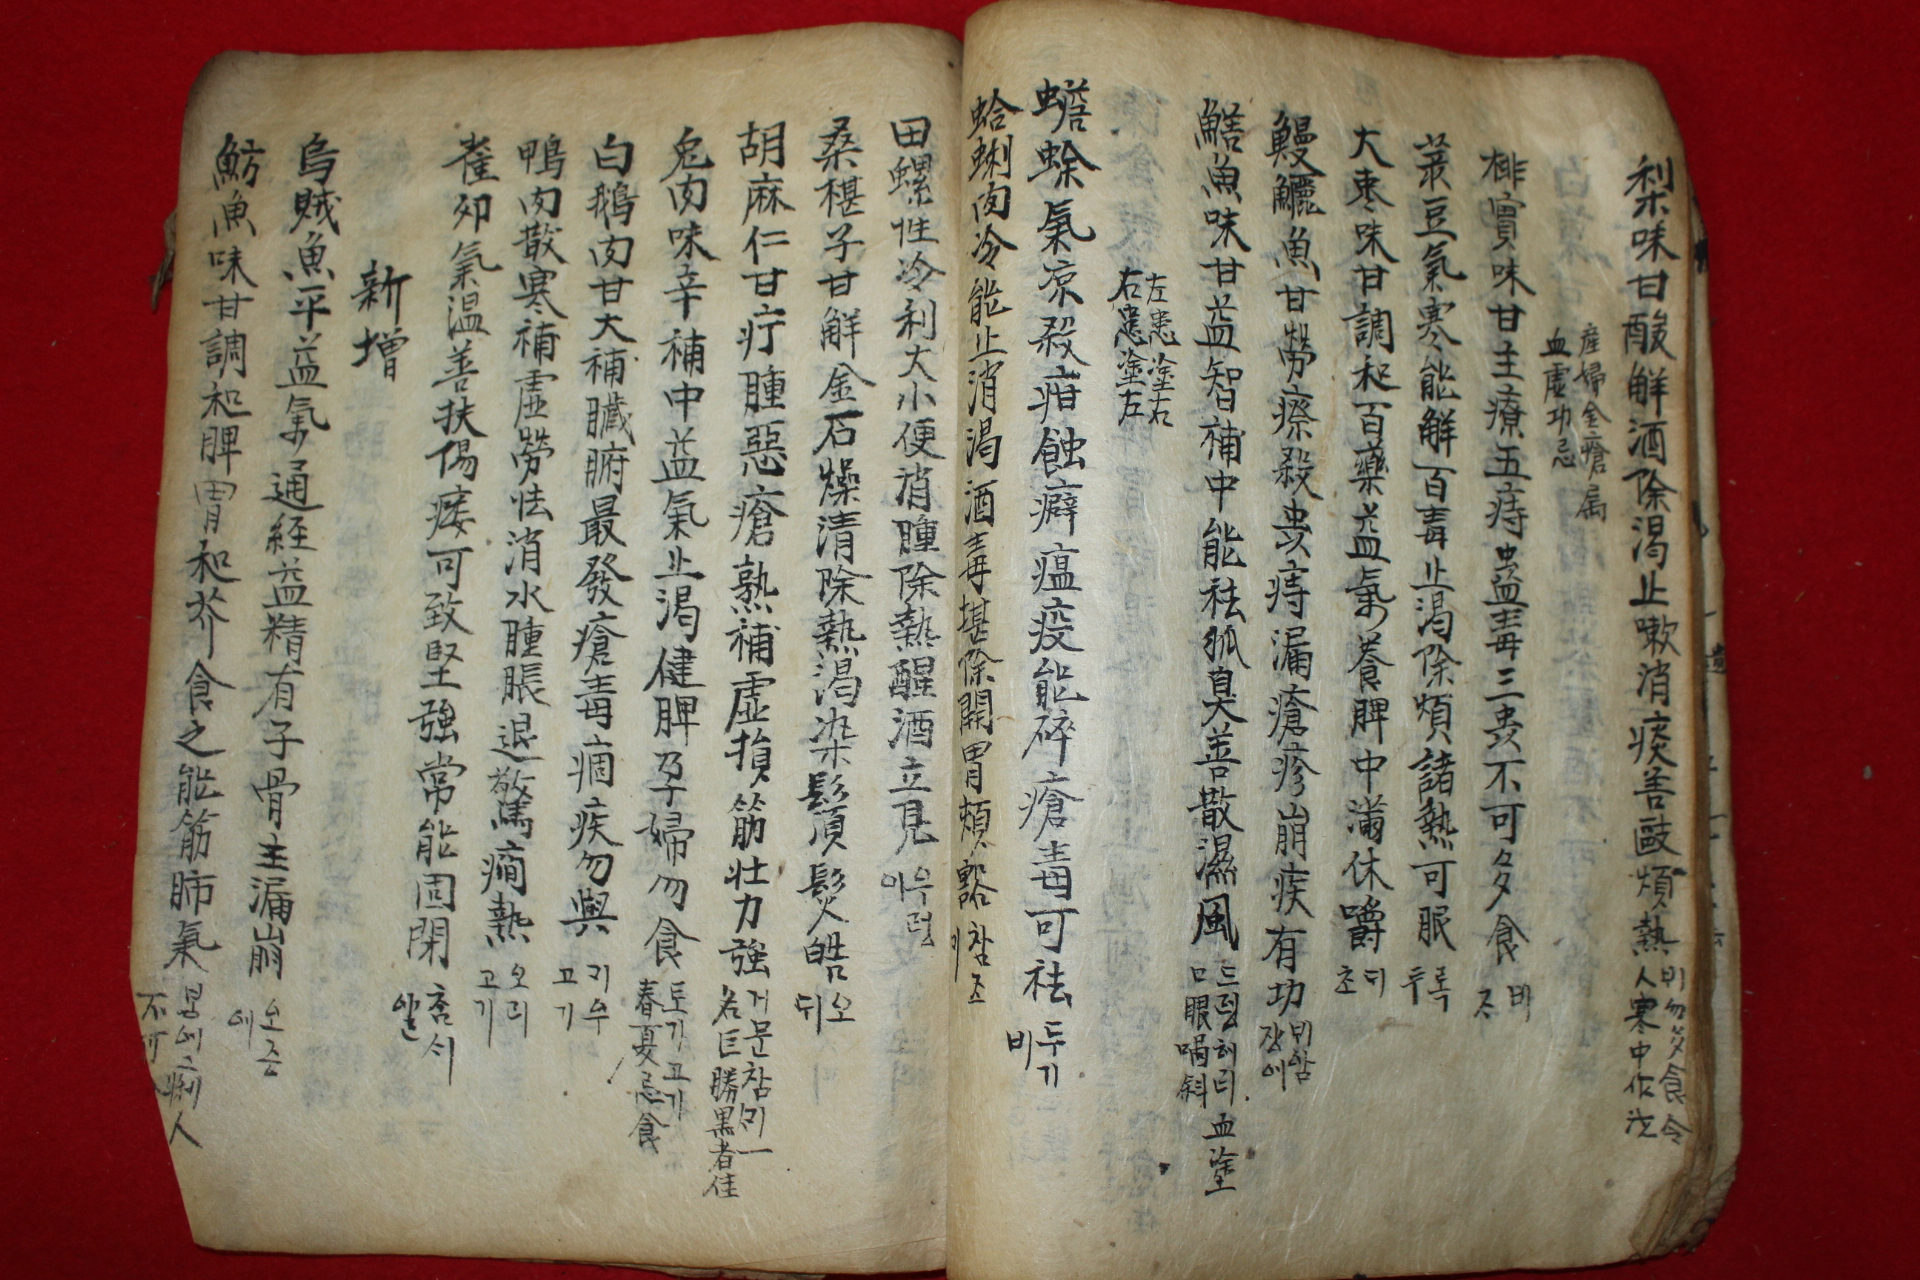 梨味甘酸解酒除渴止嗽消痰善敺煩熱 비勿多食令人寒中作泄
産婦金瘡屬血虛切忌
榧實味甘主療五痔蟲毒三虫不可多食 비즈
菉豆氣寒能解百毒止渴除煩諸熱可服 록두
大棗味甘調和百藥益氣養脾中滿休嚼 디초
鰻鱺魚甘勞瘵殺虫痔漏瘡疹崩疾有功 비얌장에
鱔魚味甘益智補中能祛狐臭善散濕風 드렁허리血塗口眼喎斜
左患塗右右患塗左
蟾蜍氣凉殺疳蝕癖瘟疫能碎瘡毒可祛 두기비
蛤蜊肉冷能止消渴酒毒堪除開胃頰豁 참죠기
田螺性冷利大小便消腫除熱醒酒立見 우렁이
桑椹子甘解金石燥清除熱渴染鬚髮皓 오디
胡麻仁甘疔腫惡瘡熟補虛損筋壯力強 거문참끼一名巨勝黑者佳
兔肉味辛補中益氣止渴健脾孕婦勿食 토기고기春夏忌食
白鵝肉甘大補臟腑最發瘡毒痼疾勿與 기우고기
鴨肉散寒補虛勞怯消水腫脹退驚癇熱 오리고기
雀卵氣溫善扶傷痿可致堅強常能固閉 춤시알
新增
烏賊魚平益氣通経益精有子骨主漏崩 오즌에
魴魚味甘調和脾胃和芥食之能筋肺氣 방에고痢人不可食